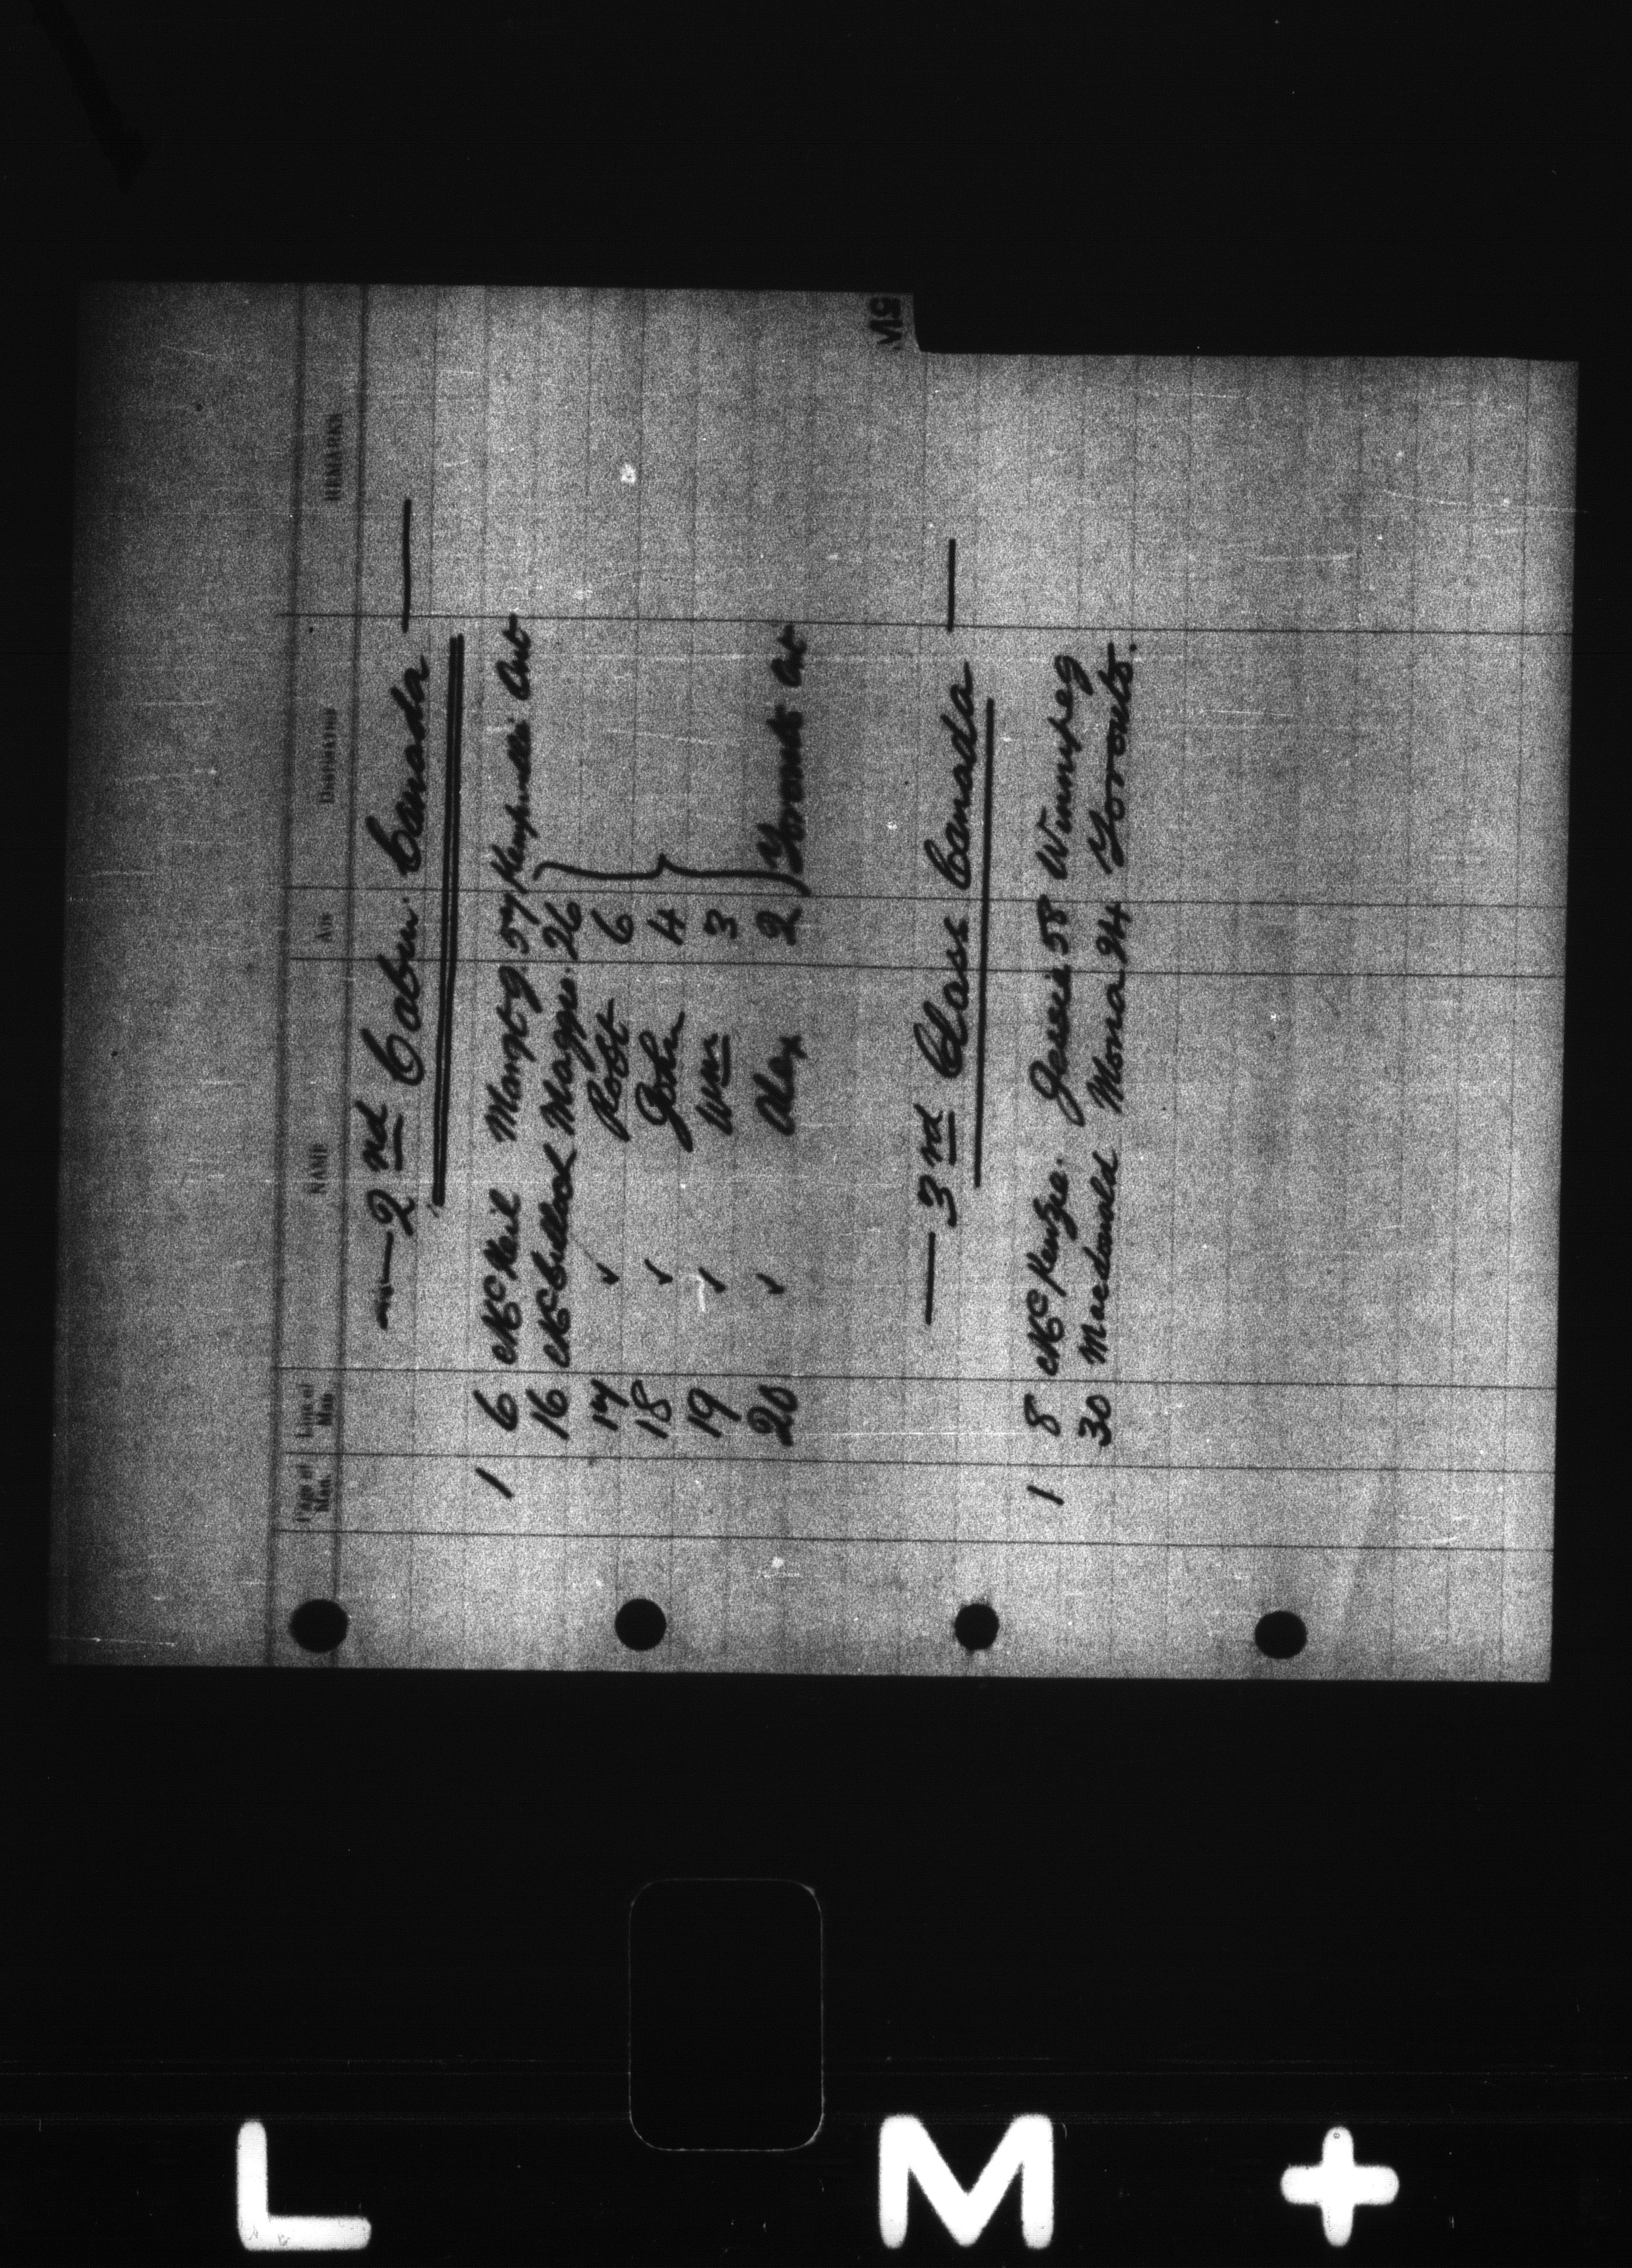 Page of Man. Line of Man. NAME AGE DESTINATION REMARKS
— 2nd Cabin. Canada —
1 6 McNeil Margt J. 57 Ont
16 McCulloch Maggie. 26
17 " Robt 6
18 " John 4
19 " Wm 3
20 " Alex 2 Toronto Ont
— 3rd Class Canada —
1 8 McKenzie. Jessie 58 Winnipeg
30 Macdonald Mona 24 Toronto.
MS
L M +